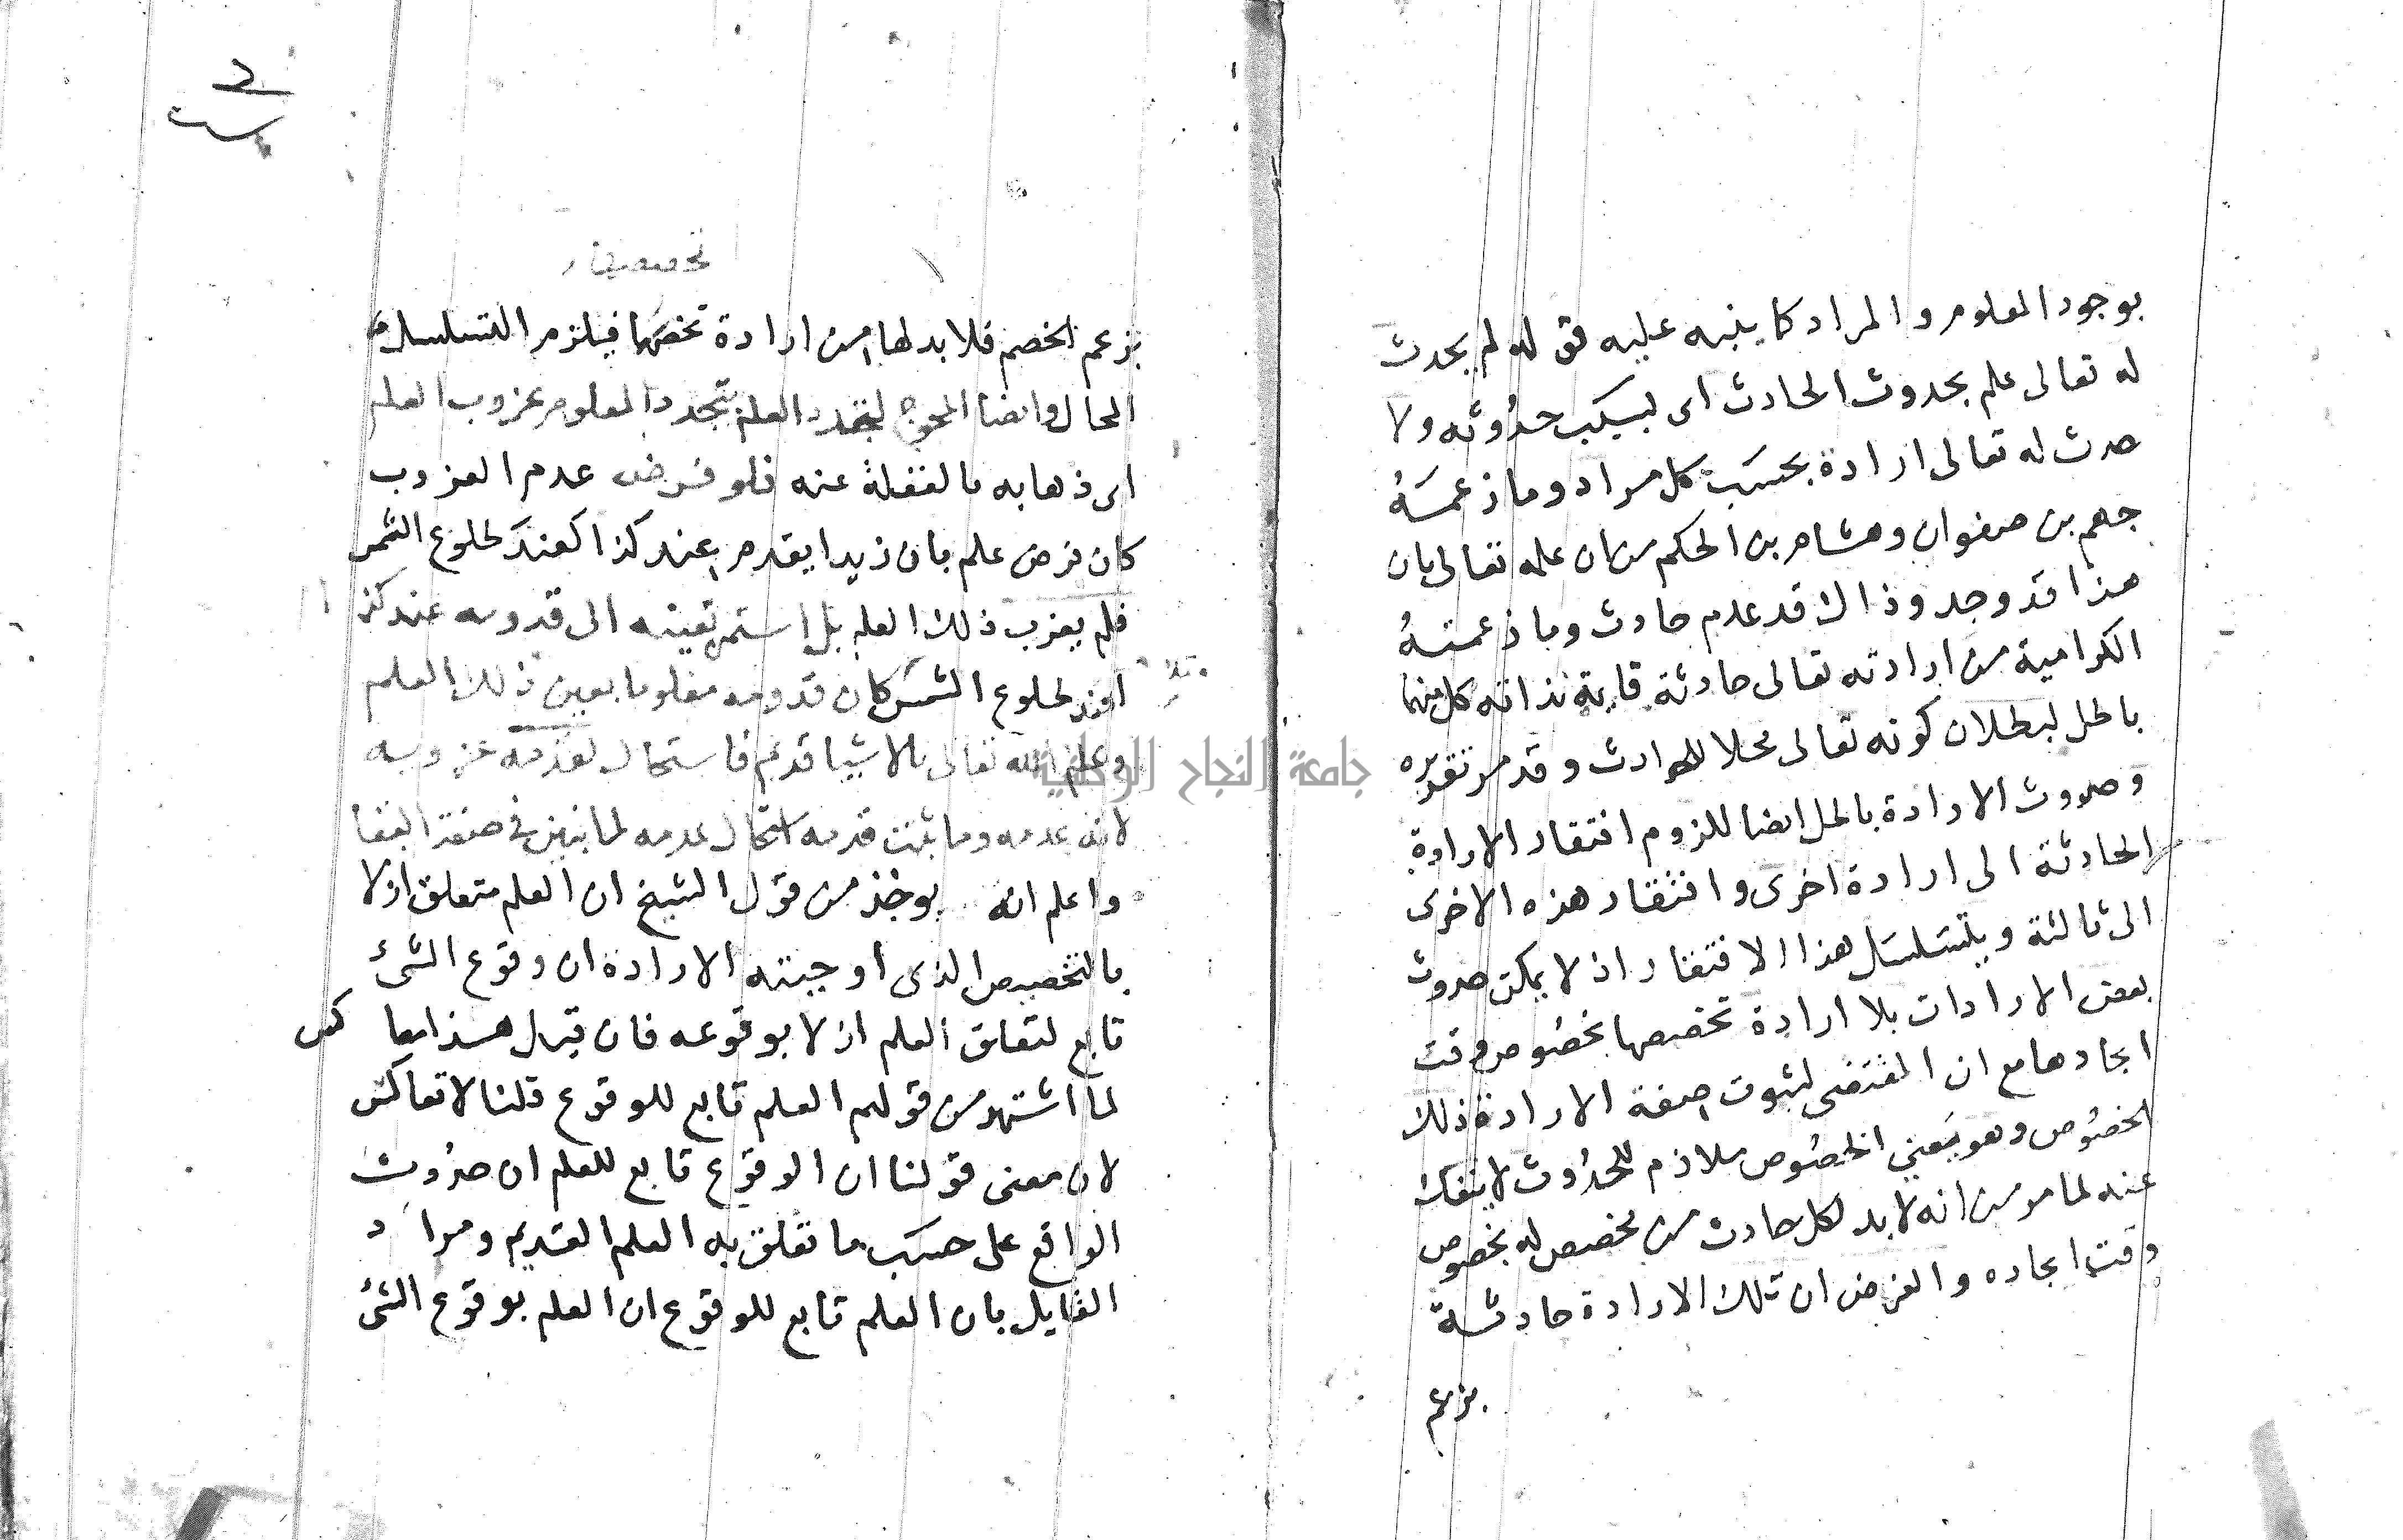 بوجود المعلوم والمراد كما ينبه عليه قوله لم يحدث
له تعالى علم بحدوث الحادث اى بسبب حدوثه ولا
حدث له تعالى ارادة بحسب كل مراد وما زعمه
جهم بن صفوان وهشام بن الحكم من ان علمه تعالى بان
هذا قد وجد وذاك قد عدم حادث وما زعمته
الكرامية من ارادته تعالى حادثة قايمة بذاته كل منهما
باطل لبطلان كونه تعالى محلا للحوادث وقد مر تقريره
وحدوث الارادة باطل ايضا للزوم افتقار الارادة
الحادثة الى ارادة اخرى وافتقار هذه الاخرى
الى ثالثة ويتسلسل هذا الافتقار اذ لا يمكن حدوث
بعض الارادات بلا ارادة تخصصها بخصوص وقت
ايجادها مع ان المقتضى لثبوت صفة الارادة ذلك
الخصوص وهو يعني الخصوص ملازم للحدوث لا ينفك
عنه لما مر من انه لا بد لكل حادث من مخصص له بخصوص
وقت ايجاده والغرض ان تلك الارادة حادثة
بزعم
بزعم الخصم فلا بد لها من ارادة تخصها فيلزم التسلسل
المحال وايضا المحوج لتجدد العلم بتجدد المعلوم عزوب العلم
اى ذهابه بالغفلة عنه فلو فرض عدم العزوب
كان فرض علم بان زيدا يقدم عند كذا كعند طلوع الشمس
فلم يعزب ذلك العلم بل استمر بعينه الى قدومه عند كذا
اعند طلوع الشمس كان قدومه معلوما بعين ذلك العلم
وعلم الله تعالى بالاشيا قديم فاستحال لقدمه عزوبه
لانه عدمه وما ثبت قدمه استحال عدمه لما تبين في صفة البقا
واعلم انه يوخذ من قول الشيخ ان العلم متعلق ازلا
بالتخصيص الذى اوجبته الارادة ان وقوع الشئ
تابع لتعلق العلم ازلا بوقوعه فان قيل هذا يعاكس
لما اشتهر من قولهم العلم تابع للوقوع قلنا لا تعاكس
لان معنى قولنا ان الوقوع تابع للعلم ان حدوث
الواقع على حسب ما تعلق به العلم القديم ومراد
القايل بان العلم تابع للوقوع ان العلم بوقوع الشئ
جامعة النجاح الوطنية